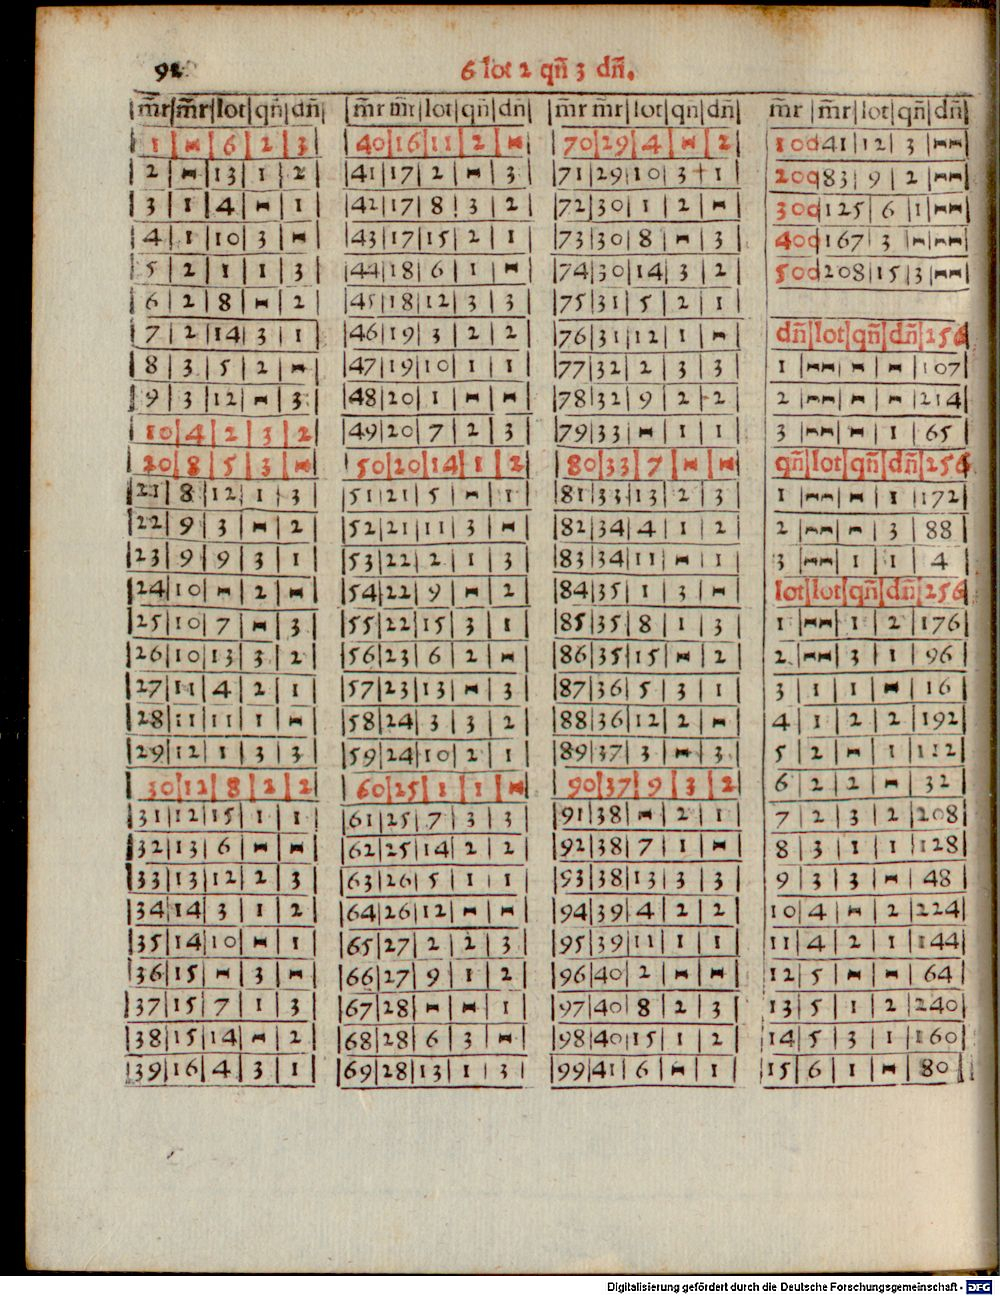 92
6 lot 2 qn̄ 3 dn̄.
m̄r|m̄r|lot|qn̄|dn̄
1|-|6|2|3
2|-|13|1|2
3|1|4|-|1
4|1|10|3|-
5|2|1|1|3
6|2|8|-|2
7|2|14|3|1
8|3|5|2|-
9|3|12|-|3
10|4|2|3|2
20|8|5|3|-
21|8|12|1|3
22|9|3|-|2
23|9|9|3|1
24|10|-|2|-
25|10|7|-|3
26|10|13|3|2
27|11|4|2|1
28|11|11|1|-
29|12|1|3|3
30|12|8|2|2
31|12|15|1|1
32|13|6|-|-
33|13|12|2|3
34|14|3|1|2
35|14|10|-|1
36|15|-|3|-
37|15|7|1|3
38|15|14|-|2
39|16|4|3|1
m̄r|m̄r|lot|qn̄|dn̄
40|16|11|2|-
41|17|2|-|3
42|17|8|3|2
43|17|15|2|1
44|18|6|1|-
45|18|12|3|3
46|19|3|2|2
47|19|10|1|1
48|20|1|-|-
49|20|7|2|3
50|20|14|1|2
51|21|5|-|1
52|21|11|3|-
53|22|2|1|3
54|22|9|-|2
55|22|15|3|1
56|23|6|2|-
57|23|13|-|3
58|24|3|3|2
59|24|10|2|1
60|25|1|1|-
61|25|7|3|3
62|25|14|2|2
63|26|5|1|1
64|26|12|-|-
65|27|2|2|3
66|27|9|1|2
67|28|-|-|1
68|28|6|3|-
69|28|13|1|3
m̄r|m̄r|lot|qn̄|dn̄
70|29|4|-|2
71|29|10|3|1
72|30|1|2|-
73|30|8|-|3
74|30|14|3|2
75|31|5|2|1
76|31|12|1|-
77|32|2|3|3
78|32|9|2|2
79|33|-|1|1
80|33|7|-|-
81|33|13|2|3
82|34|4|1|2
83|34|11|-|1
84|35|1|3|-
85|35|8|1|3
86|35|15|-|2
87|36|5|3|1
88|36|12|2|-
89|37|3|-|3
90|37|9|3|2
91|38|-|2|1
92|38|7|1|-
93|38|13|3|3
94|39|4|2|2
95|39|11|1|1
96|40|2|-|-
97|40|8|2|3
98|40|15|1|2
99|41|6|-|1
m̄r|m̄r|lot|qn̄|dn̄
100|41|12|3|--
200|83|9|2|--
300|125|6|1|--
400|167|3|-|--
500|208|15|3|--
dn̄|lot|qn̄|dn̄|256
1|--|-|-|107
2|--|-|-|214
3|--|-|1|65
qn̄|lot|qn̄|dn̄|256
1|--|-|1|172
2|--|-|3|88
3|--|1|1|4
lot|lot|qn̄|dn̄|256
1|--|1|2|176
2|--|3|1|96
3|1|1|-|16
4|1|2|2|192
5|2|-|1|112
6|2|2|-|32
7|2|3|2|208
8|3|1|1|128
9|3|3|-|48
10|4|-|2|224
11|4|2|1|144
12|5|-|-|64
13|5|1|2|240
14|5|3|1|160
15|6|1|-|80
Digitalisierung gefördert durch die Deutsche Forschungsgemeinschaft - DFG